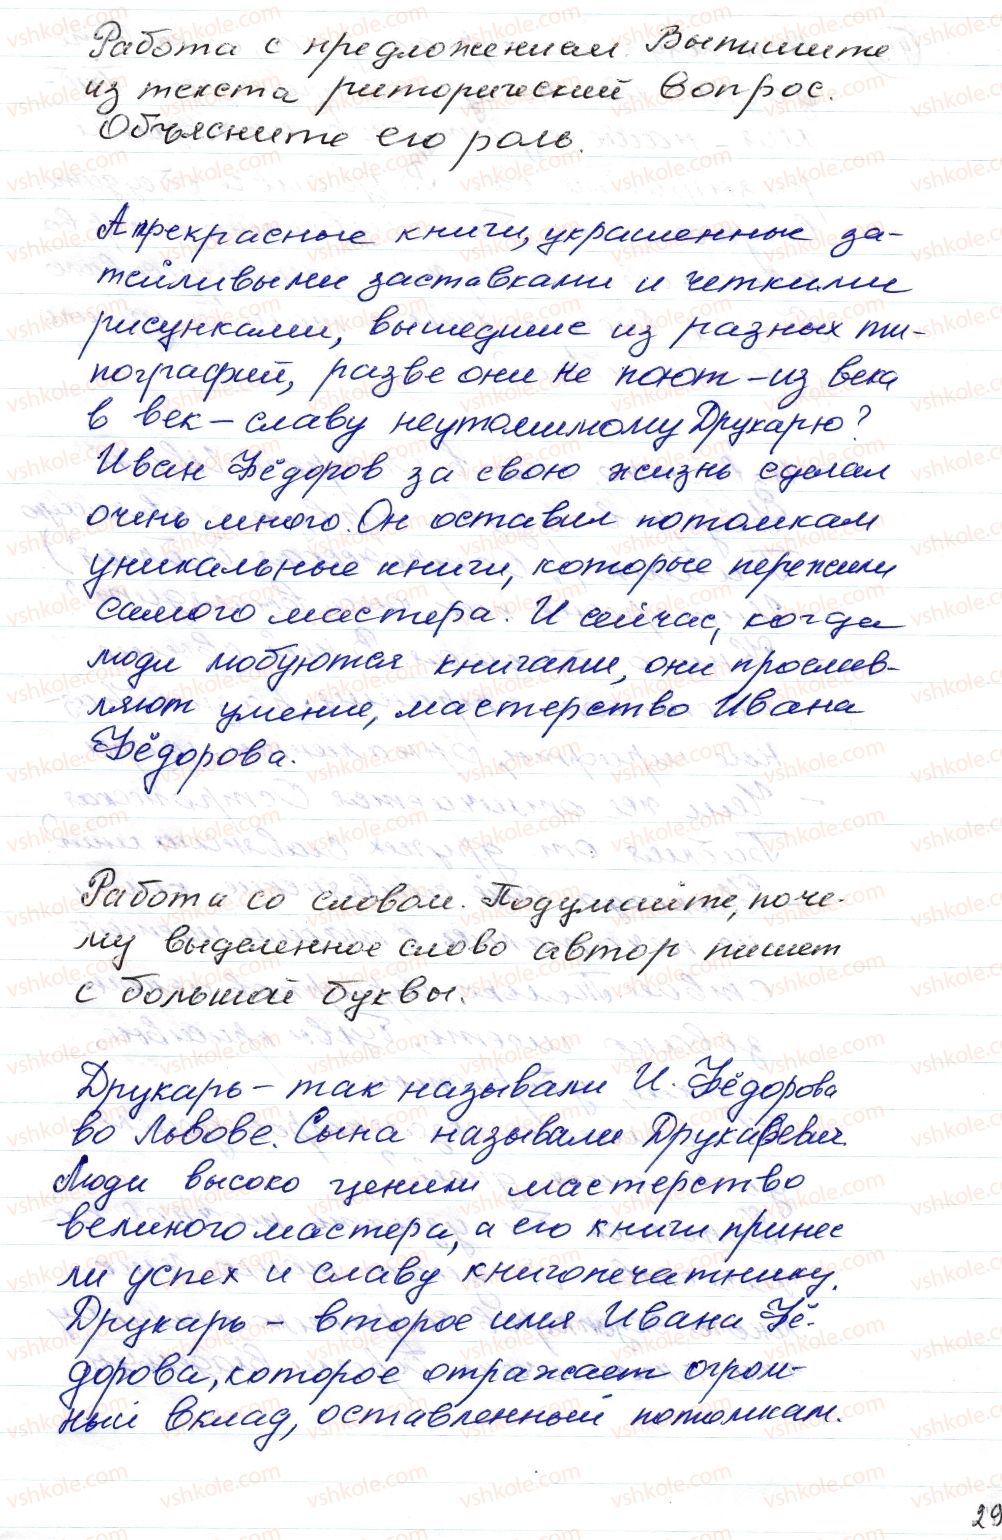 Работа с предложением. Выпишите
из текста риторический вопрос.
Объясните его роль.
А прекрасные книги, украшенные за-
тейливыми заставками и четкими
рисунками, вышедшие из разных ти-
пографий, разве они не поют – из века
в век – славу неутомимому Друкарю?
Иван Фёдоров за свою жизнь сделал
очень много. Он оставил потомкам
уникальные книги, которые пережили
самого мастера. И сейчас, когда
люди любуются книгами, они прослав-
ляют умение, мастерство Ивана
Фёдорова.
Работа со словом. Подумайте, поче-
му выделенное слово автор пишет
с большой буквы.
Друкарь – так называли И. Фёдорова
во Львове. Сына называли Друкаревич.
Люди высоко ценили мастерство
великого мастера, а его книги принес
ли успех и славу книгопечатнику.
Друкарь – второе имя Ивана Фё-
дорова, которое отражает огром-
ный вклад, оставленный потомкам.
29